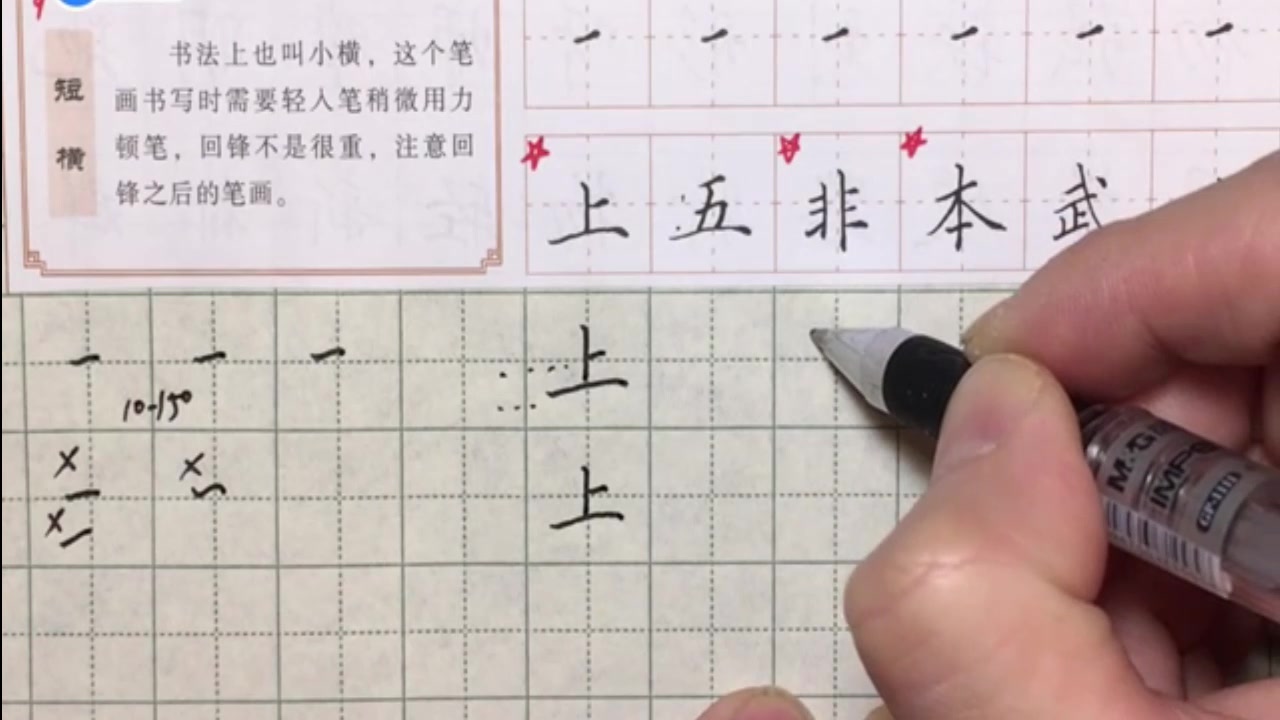 短横
书法上也叫小横，这个笔
画书写时需要轻入笔稍微用力
顿笔，回锋不是很重，注意回
锋之后的笔画。
上 五 非 本 武
上
10-15°
上
M&G
GP-1111